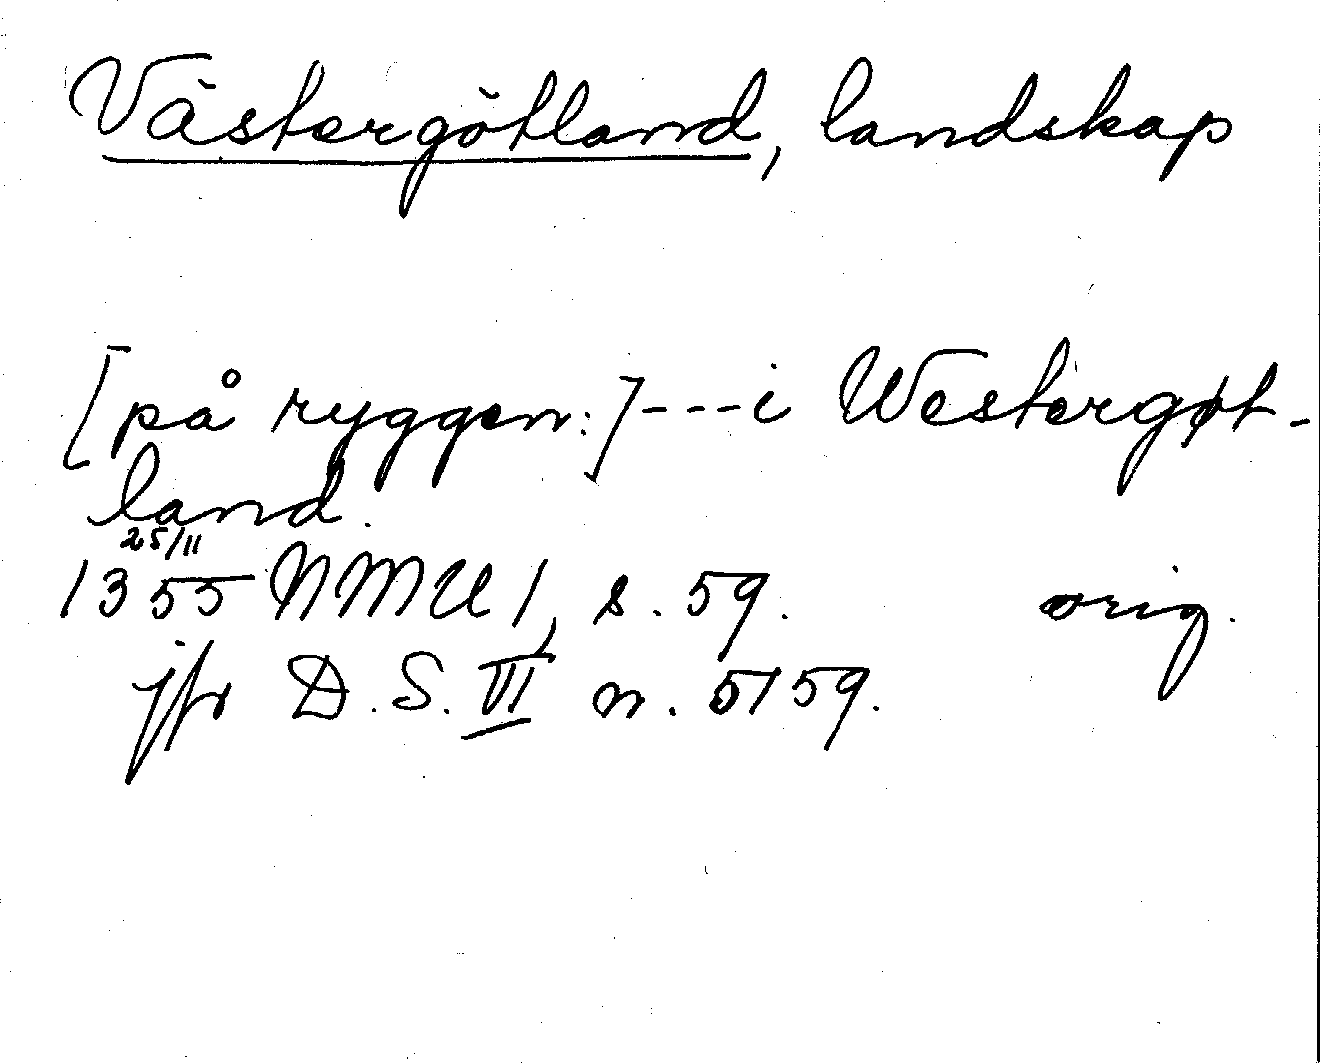 Västergötland, landskap
[på ryggen:]---i Westergøt-
land.
25/11
1355 NMU 1, s. 59. orig.
jfr D.S. VI n. 5159.